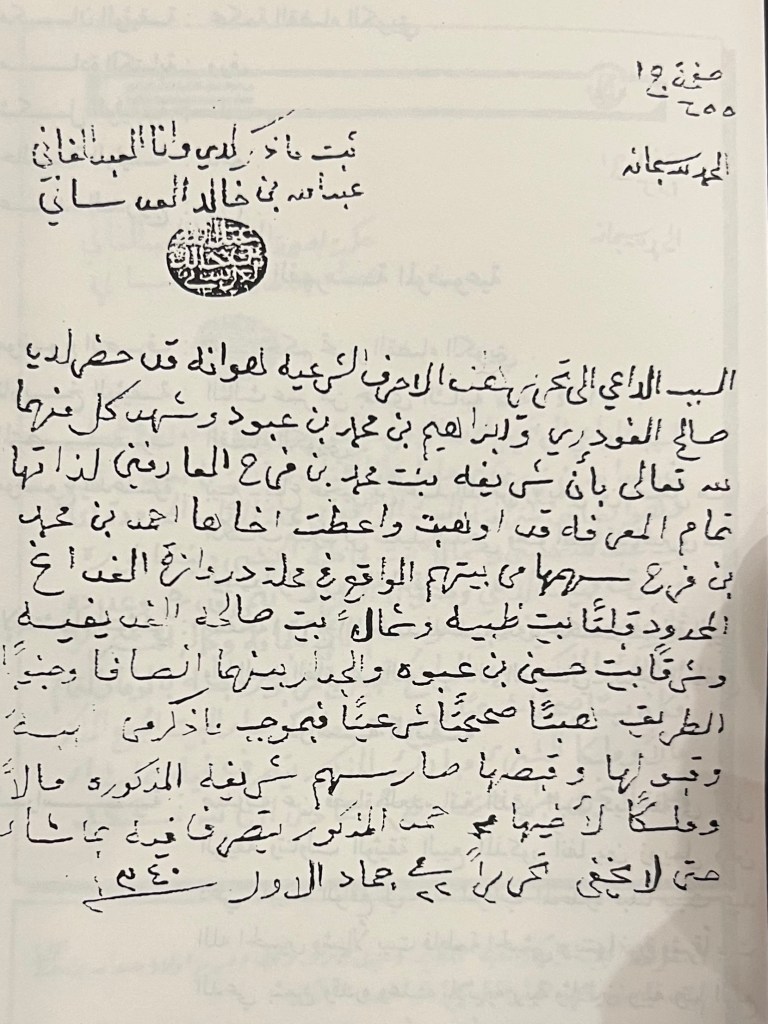 صفحة ١٥
٢٥٥
الحمد لله سبحانه
ثبت ما ذكر لدي وانا العبد الفاني
عبدالله بن خالد العدساني
السبب الداعي الى تحرير هذه الاحرف الشرعيه هو انه قد حضر لديا
صالح الفودري وابراهيم بن محمد بن عبود وشهد كل منهما
لله تعالى بأن شريفه بنت محمد بن فرح المعارفين لذاتها
تمام المعرفه قد اوهبت واعطت اخاها احمد بن محمد
بن فرح سهمها من بيتهم الواقع في محلة دروازة الفداغ
المحدود قبلتًا بيت ظبيه وشمالاً بيت صالحه
وشرقًا بيت حسين بن عبوه والجدار بينهما انصافا وجنوبًا
الطريق هبتًا صحيحيًا شرعيًا فبموجب ماذكر من الهبة
وقبولها وقبضها صار سهم شريفة المذكوره مالاً
وملكًا لأخيها احمد المذكور يتصرف فيه بما شاء
حتى لا يخفى تحريراً في ٢٢ جماد الاول ١٣٤٠